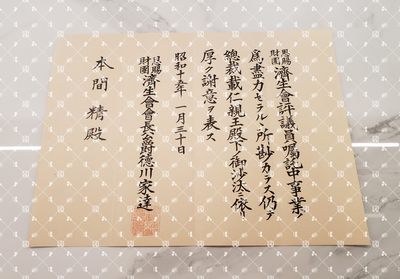 恩賜財團 濟生會評議員囑託中事業ノ
爲盡力セラルヽ所尠カラス仍テ
總裁載仁親王殿下ノ御沙汰ニ依リ
厚ク謝意ヲ表ス
昭和十五年一月三十日
恩賜財團 濟生會會長公爵德川家達
本間精殿